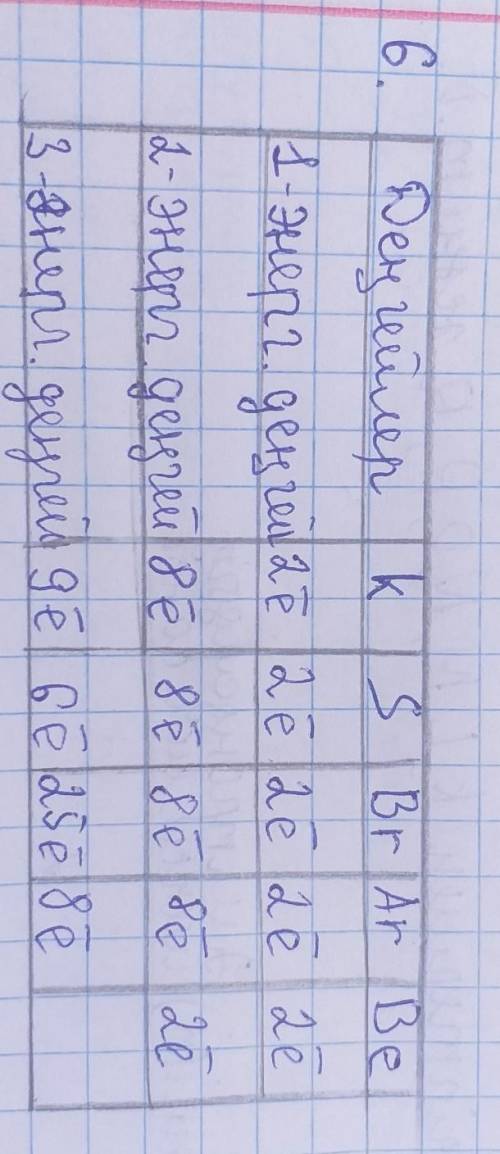 6.
Деңгейлер K S Br Ar Be
1-энерг. деңгей 2ē 2ē 2ē 2ē 2ē
2-энерг. деңгей 8ē 8ē 8ē 8ē 2ē
3-энерг. деңгей 9ē 6ē 25ē 8ē